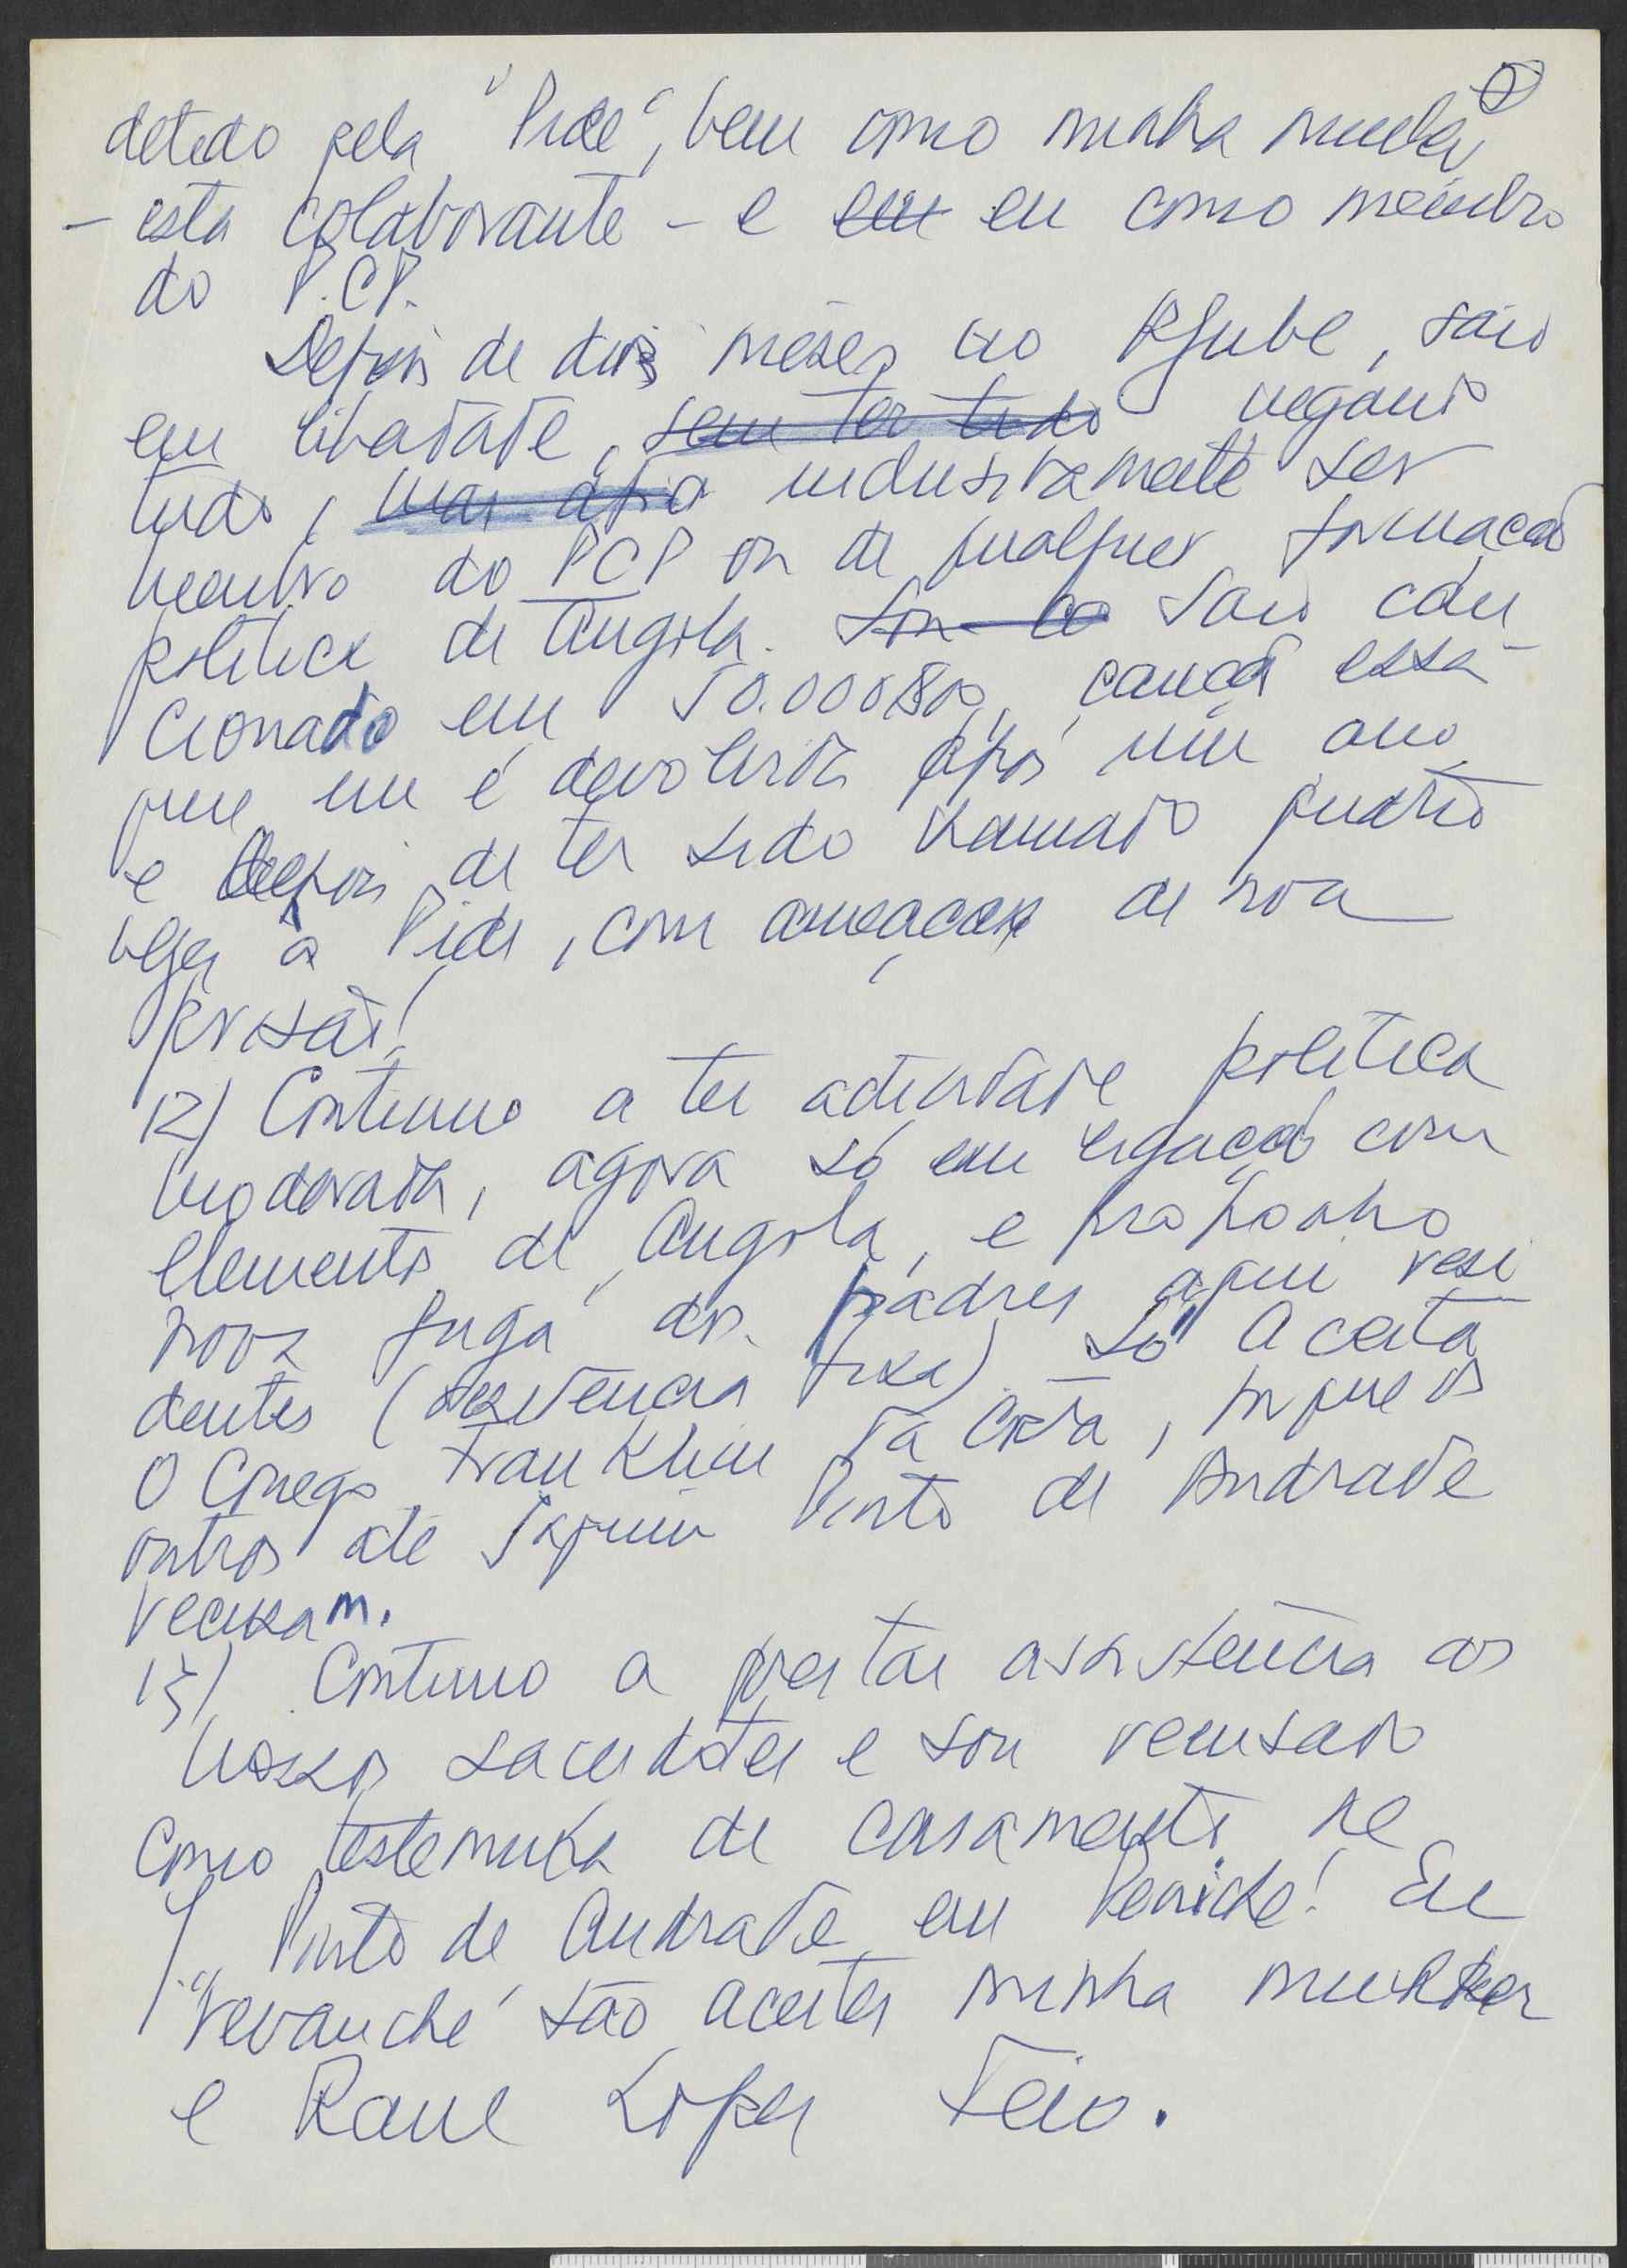 detido pela "Pide", bem como minha mulher
- esta colaborante - e eu eu como membro
do P.C.P.
Depois de dois meses no Aljube, saio
em liberdade, sem ter tido negando
tudo, inclusivamente ser
membro do PCP ou de qualquer formação
política de Angola. Saio cau
cionado em 50.000$00, caução essa
que me é devolvida após um ano
e depois de ter sido chamado quatro
vezes à Pide, com ameaças de nova
prisão!
12) Continuo a ter actividade política
moderada, agora só em ligação com
elementos de Angola, e proponho
nova fuga dos padres aqui resi
dentes (residência fixa) - Só aceita
o Cónego Franklin da Costa, porque os
outros até Joaquim Pinto de Andrade
recusam.
13) Continuo a prestar assistência aos
nossos sacerdotes e sou recusado
como testemunha de casamento de
J. Pinto de Andrade em Peniche! Em
"revanche" são aceites minha mulher
e Raul Lopes Feio.